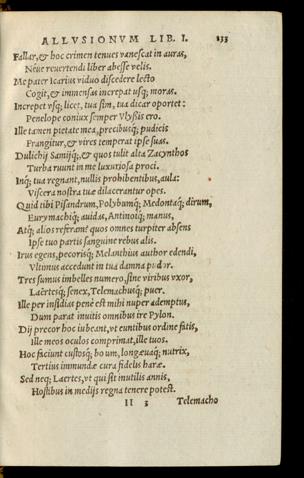 ALLVSIONVM LIB. I. 233
Fallar, & hoc crimen tenues vanescat in auras,
Néue reuertendi liber abesse velis.
Me pater Icarius viduo discedere lecto
Cogit, & immensas increpat vsq; moras.
Increpet vsq; licet, tua sim, tua dicar oportet:
Penelope coniux semper Vlyssis ero.
Ille tamen pietate mea, precibusq; pudicis
Frangitur, & vires temperat ipse suas.
Dulichij Samijq;, & quos tulit alta Zacynthos
Turba ruunt in me luxuriosa proci.
Inq; tua regnant, nullis prohibentibus, aula:
Viscera nostra tuæ dilacerantur opes.
Quid tibi Pisandrum, Polybumq; Medontaq; dirum,
Eurymachiq; auidas, Antinoiq; manus,
Atq; alios referam? quos omnes turpiter absens
Ipse tuo partis sanguine rebus alis.
Irus egens, pecorisq; Melanthius author edendi,
Vltimus accedunt in tua damna pudor.
Tres sumus imbelles numero, sine viribus vxor,
Laërtesq; senex, Telemachusq; puer.
Ille per insidias penè est mihi nuper ademptus,
Dum parat inuitis omnibus ire Pylon.
Dij precor hoc iubeant, vt euntibus ordine fatis,
Ille meos oculos comprimat, ille tuos.
Hoc faciunt custosq; boum, longæuaq; nutrix,
Tertius immundæ cura fidelis haræ.
Sed neq; Laertes, vt qui sit inutilis annis,
Hostibus in medijs regna tenere potest.
II 3 Telemacho